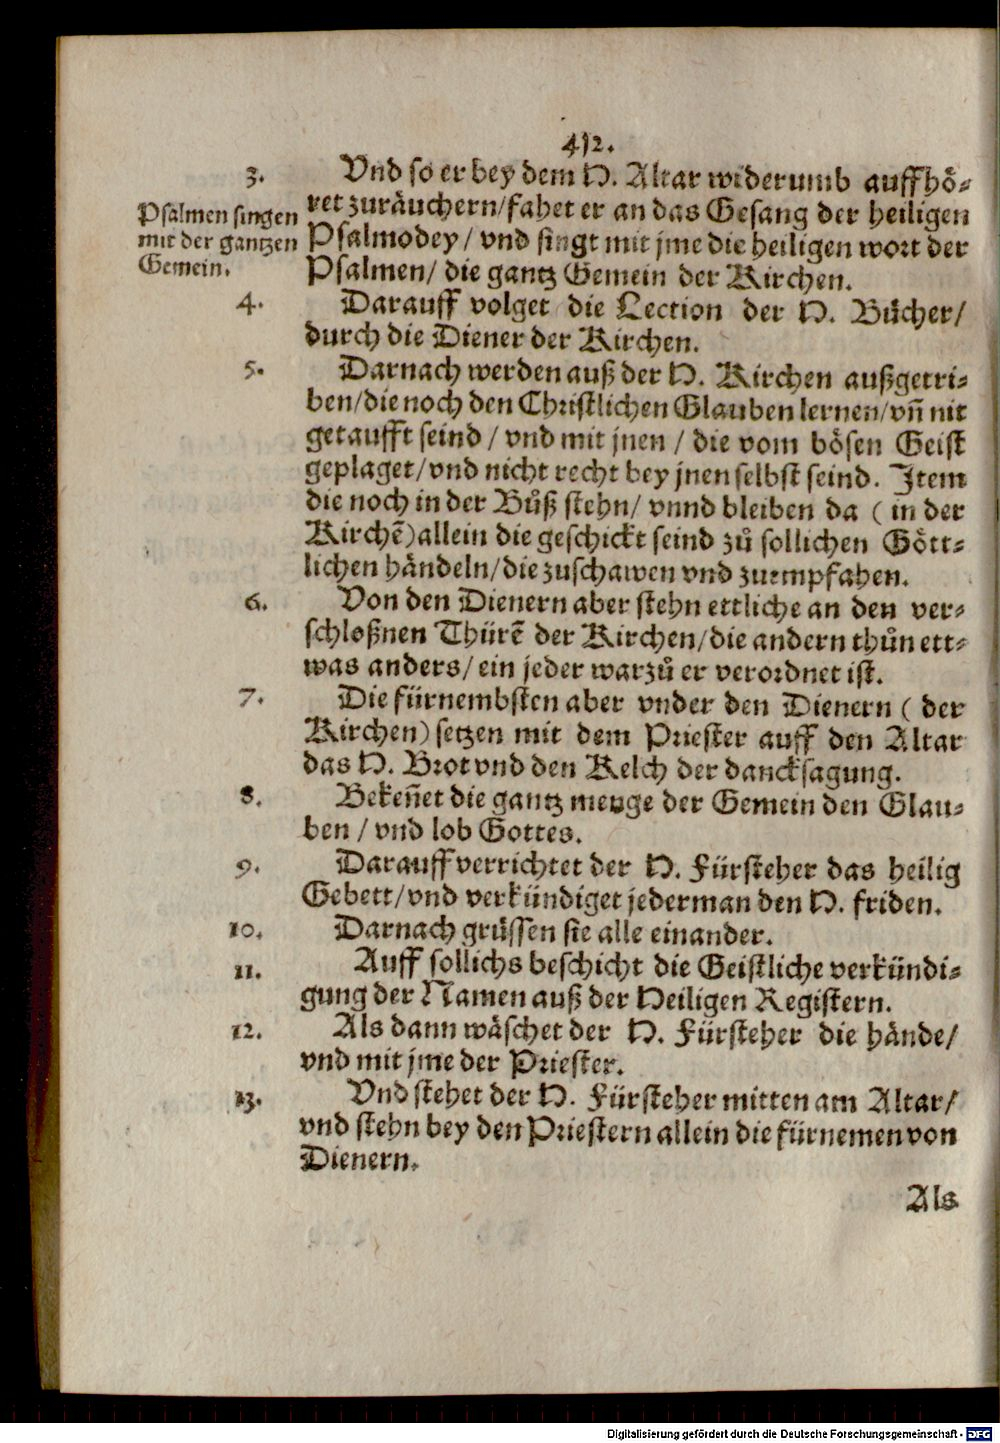 412.
3. Vnd so er bey dem H. Altar widerumb auffhö⸗
ret zuräuchern/fahet er an das Gesang der heiligen
Psalmodey/ vnd singt mit jme die heiligen wort der
Psalmen/ die gantz Gemein der Kirchen.
Psalmen singen
mit der gantzen
Gemein.
4. Darauff volget die Lection der H. Bücher/
durch die Diener der Kirchen.
5. Darnach werden auß der H. Kirchen außgetri⸗
ben/die noch den Christlichen Glauben lernen/vñ nit
getaufft seind/ vnd mit jnen/ die vom bösen Geist
geplaget/vnd nicht recht bey jnen selbst seind. Item
die noch in der Bůß stehn/ vnnd bleiben da (in der
Kirchẽ) allein die geschickt seind zů sollichen Gött⸗
lichen händeln/die zuschawen vnd zuempfahen.
6. Von den Dienern aber stehn ettliche an den ver⸗
schloßnen Thürẽ der Kirchen/die andern thůn ett⸗
was anders/ ein jeder warzů er verordnet ist.
7. Die fürnembsten aber vnder den Dienern (der
Kirchen) setzen mit dem Priester auff den Altar
das H. Brot vnd den Kelch der dancksagung.
8. Bekeñet die gantz menge der Gemein den Glau⸗
ben/ vnd lob Gottes.
9. Darauff verrichtet der H. Fürsteher das heilig
Gebett/vnd verkündiget jederman den H. friden.
10. Darnach grüssen sie alle einander.
11. Auff sollichs beschicht die Geistliche verkündi⸗
gung der Namen auß der Heiligen Registern.
12. Als dann wäschet der H. Fürsteher die hände/
vnd mit jme der Priester.
13. Vnd stehet der H. Fürsteher mitten am Altar/
vnd stehn bey den Priestern allein die fürnemen von
Dienern.
Als
Digitalisierung gefördert durch die Deutsche Forschungsgemeinschaft - DFG